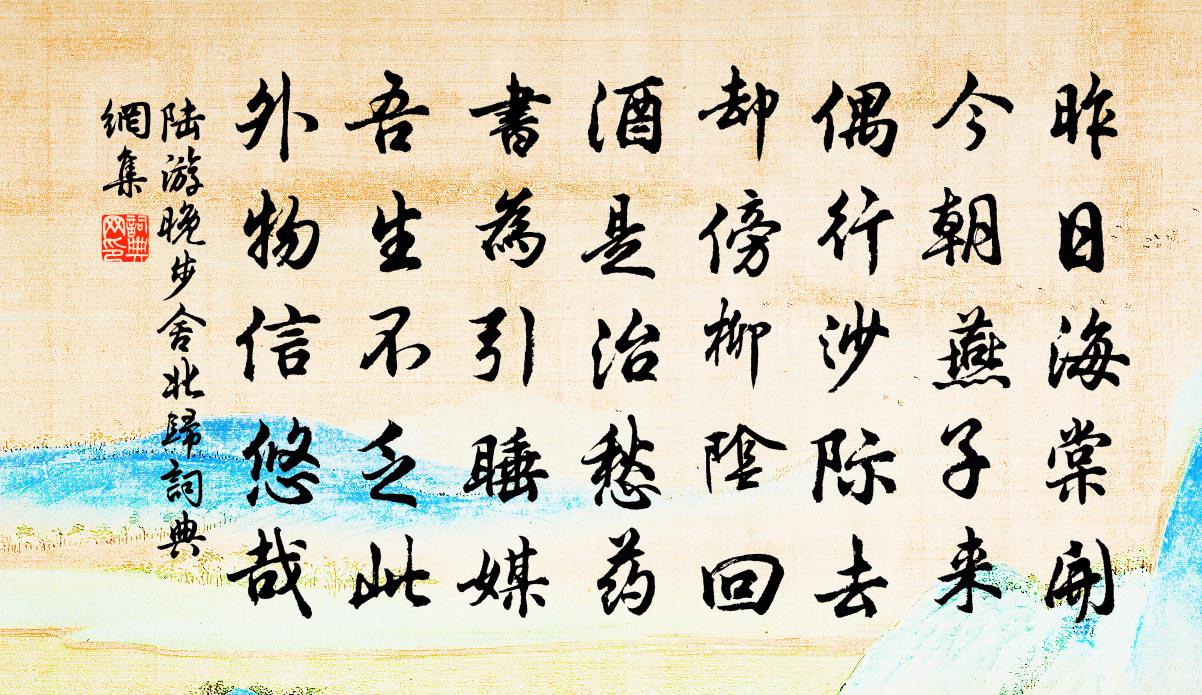 昨日海棠開
今朝燕子来
偶行沙际去
却傍柳陰回
酒是治愁药
書為引睡媒
吾生不乏此
外物信悠哉
陆游晚步舍北歸詞典
網集
詞典网印